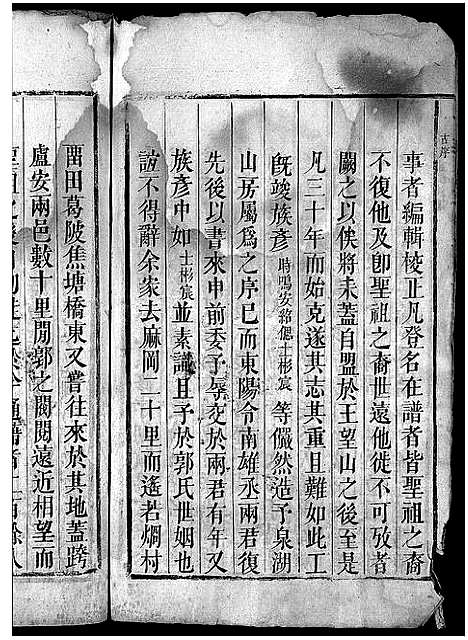 古序
事者編輯校正凡登名在譜者皆聖祖之裔
不復他及卽聖祖之裔世遠他徙不可攷者
闕之以俟將未蓋自盟於王望山之後至是
凡三十年而始克遂其志其重且難如此工
旣竣族彥時鳴安紹偲士彬宸等儼然造予泉湖
山房屬爲之序已而東陽令南雄丞兩君復
先後以書來申前委予辱交於兩君有年又
族彥中如士彬宸並素識且予於郭氏世姻也
誼不得辭余家去麻岡二十里而遙若燗村
畱田葛陂焦塘橋東又嘗往來於其地蓋跨
盧安兩邑數十里閒郭之閥閱遠近相望而